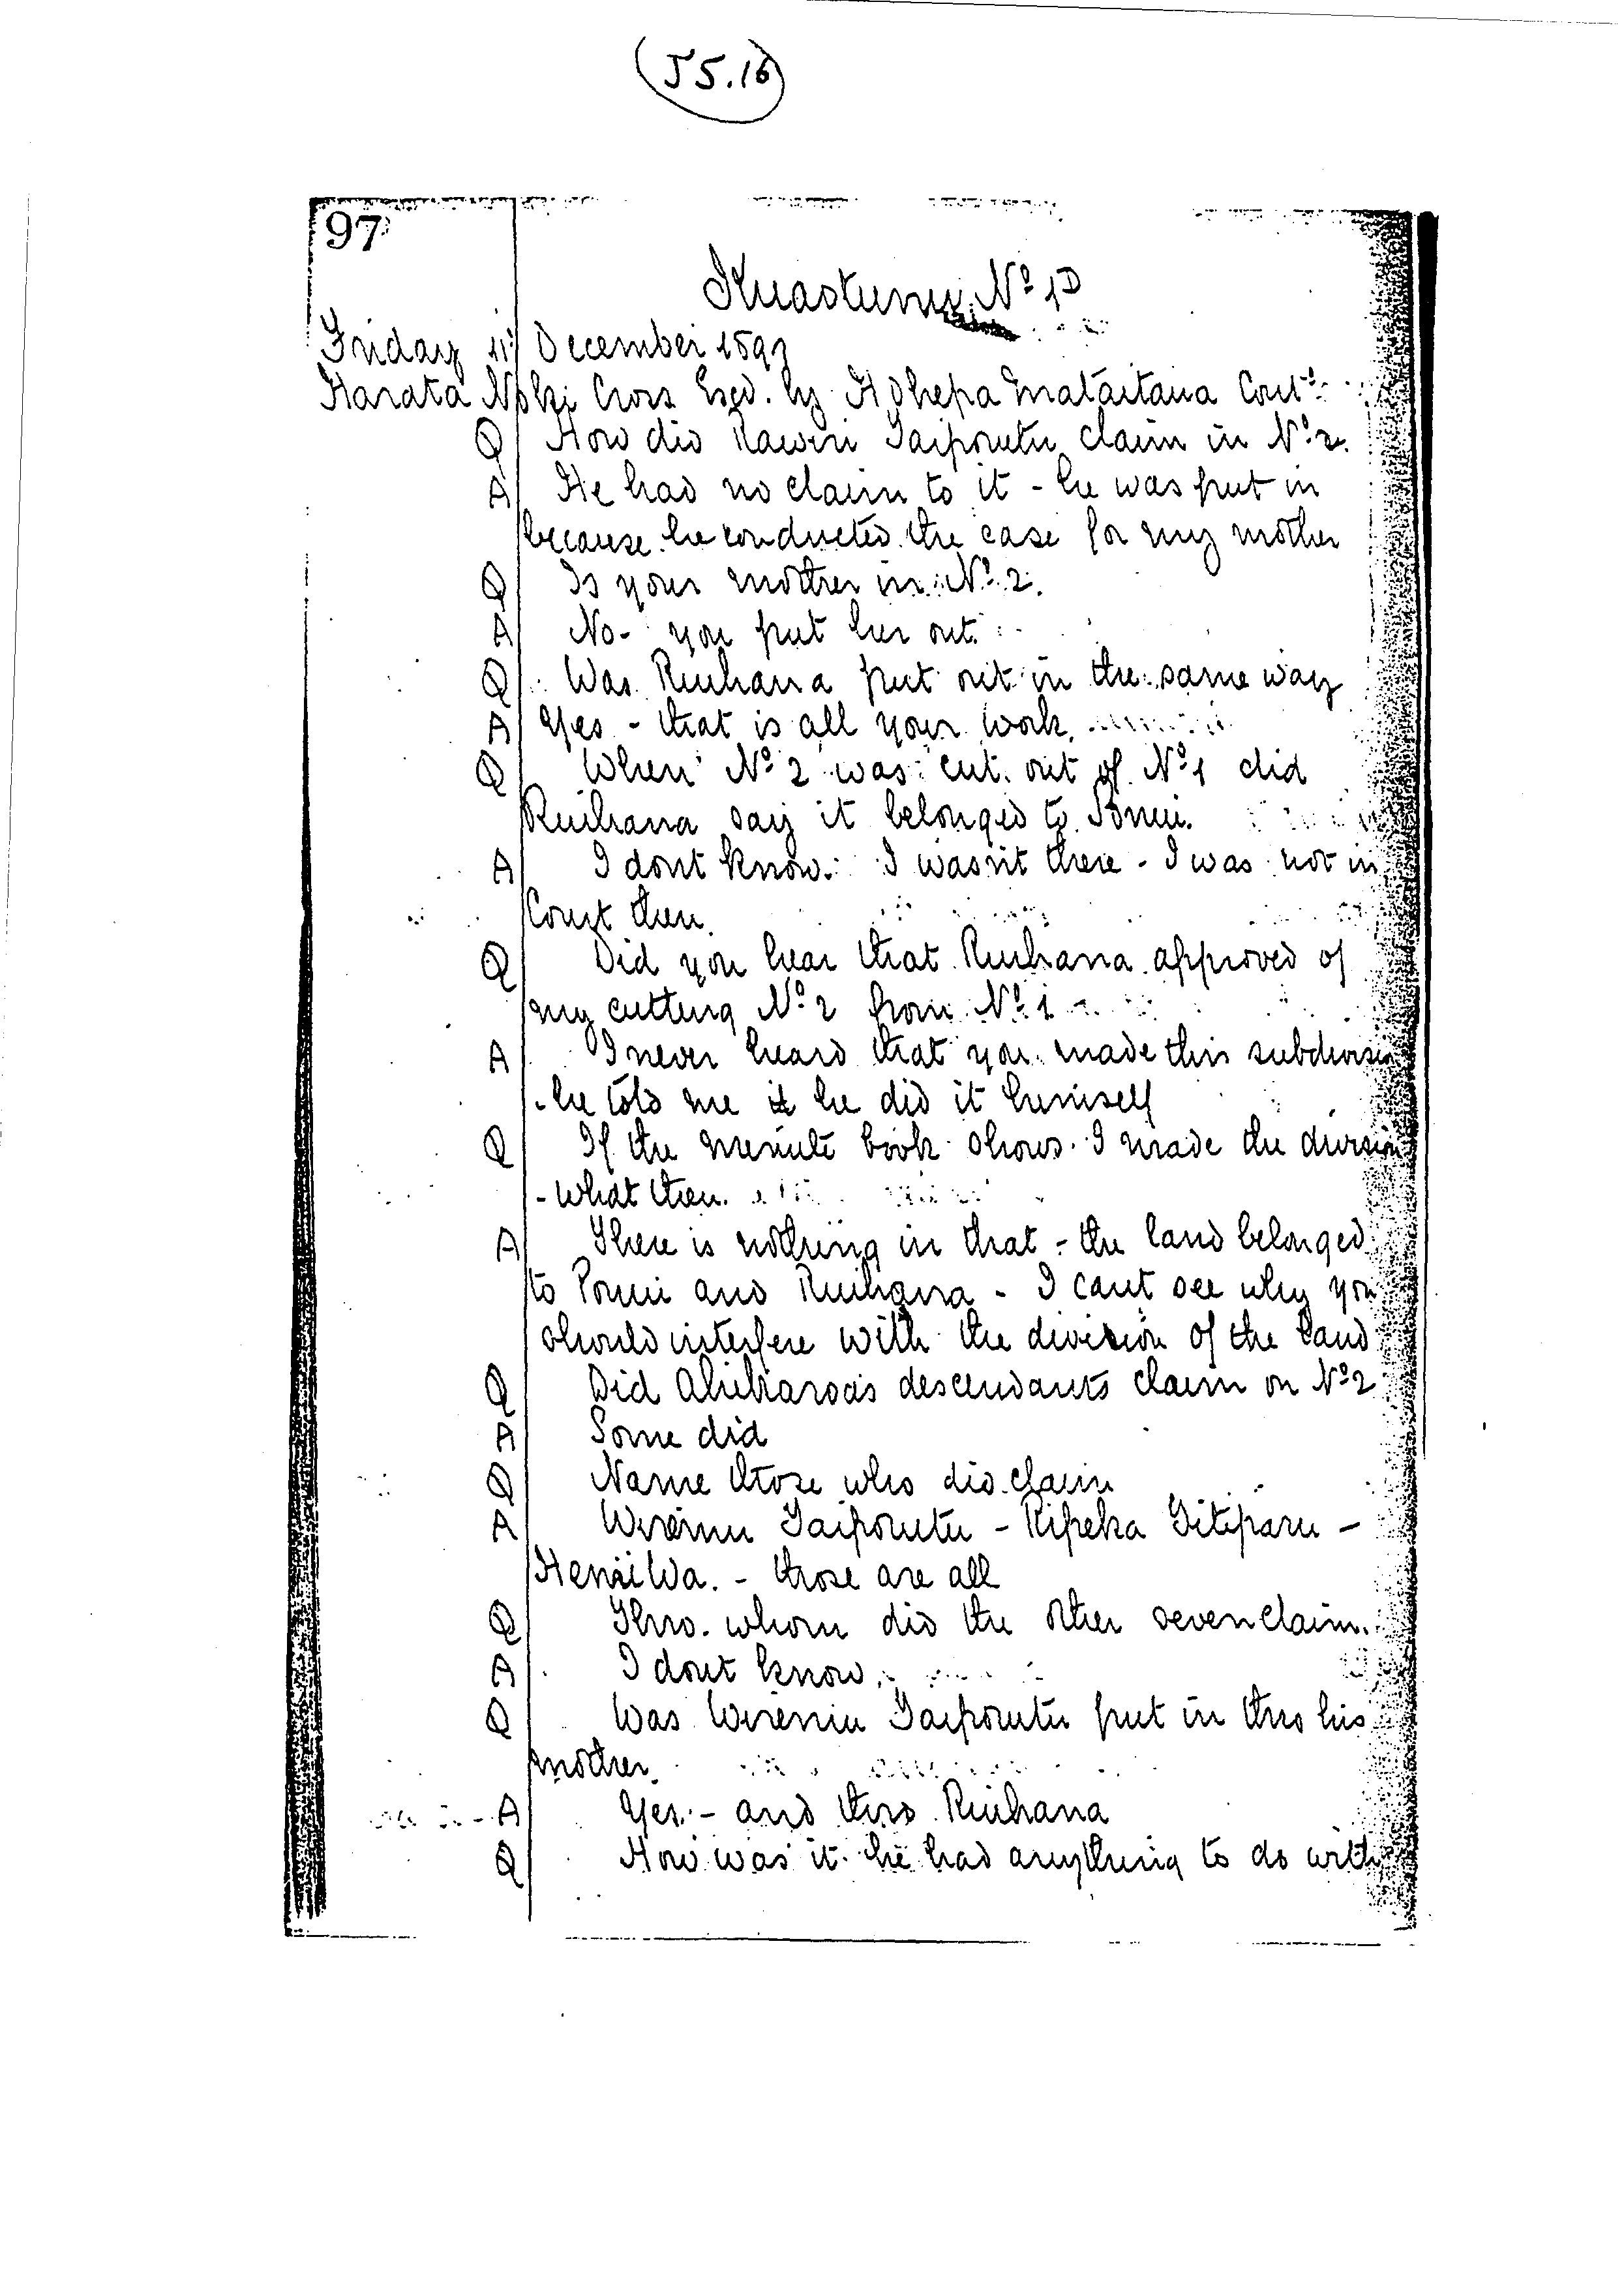 (J5.16)
97
Kuaotunu No 1D
Friday 11/ December 1891
Harata Noki Cross Exed. by Hohepa Mataitaua Contd
Q How did Rawiri Taiporutu claim in No 2.
A He had no claim to it - he was put in
because he conducted the case for my mother
Q Is your mother in No 2.
A No - you put her out.
Q Was Ruihana put out in the same way
A Yes - that is all your work.
Q When No 2 was cut out of No 1 did
Ruihana say it belonged to Pomui.
A I dont know. I wasn't there - I was not in
Court then.
Q Did you hear that Ruihana approved of
my cutting No 2 from No 1
A I never heard that you made this subdivision
- he told me it he did it himself
Q If the minute book shows I made the division
- What then.
A There is nothing in that - the land belonged
to Pomui and Ruihana - I cant see why you
should interfere with the division of the land
Q Did Ahikaroa's descendants claim on No 2
A Some did
Q Name those who did claim
A Wiremu Taiporutu - Ripeka Titiparu -
Heni Wa. - those are all
Q Thro. whom did the other seven claim.
A I dont know.
Q Was Wiremu Taiporutu put in thro his
mother.
A Yes - and thro Ruihana
Q How was it he had anything to do with